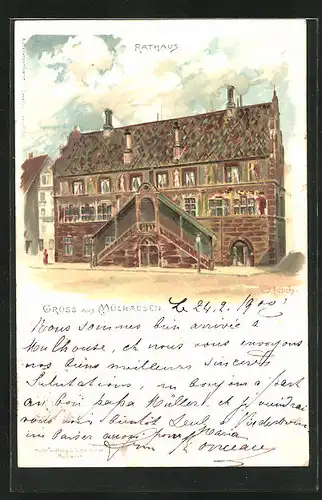 RATHAUS
GRUSS AUS MÜLHAUSEN.
Le 24.2.1900
Nous sommes bien arrivés à
Mulhouse, et nous vous envoyons
nos biens meilleurs sincères
Salutations, un bonjour a part
au bon papa Müller, et je viendrai
vous voir bientôt Seul, à
un baiser pour Maria